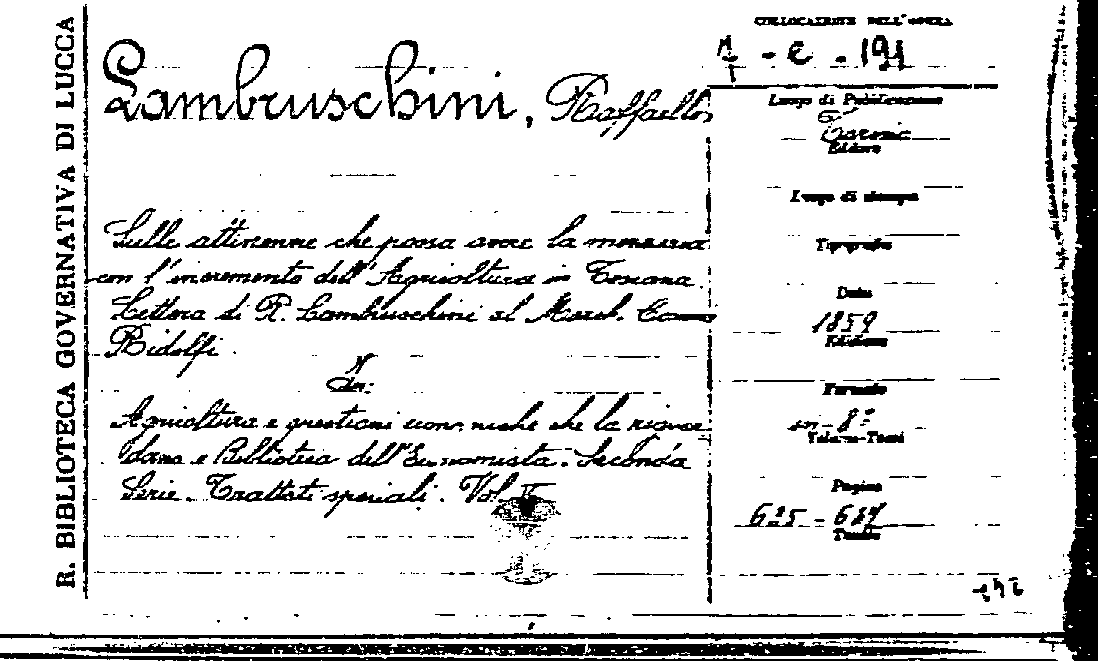 R. BIBLIOTECA GOVERNATIVA DI LUCCA
Lambruschini, Raffaello
Sulle attinenze che possa avere la mezzeria
con l'incremento dell'Agricoltura in Toscana.
Lettera di R. Lambruschini al March. Cosimo
Ridolfi.
In:
Agricoltura e questioni economiche che la riguar
dano e Biblioteca dell'Economista. Seconda
Serie. Trattati speciali. Vol.
COLLOCAZIONE DELL'OPERA
Luogo di Pubblicazione
Torino
Editore
Luogo di stampa
Tipografia
Data
1859
Edizione
Formato
in-8°
Volume-Tomi
Pagine
Tavole